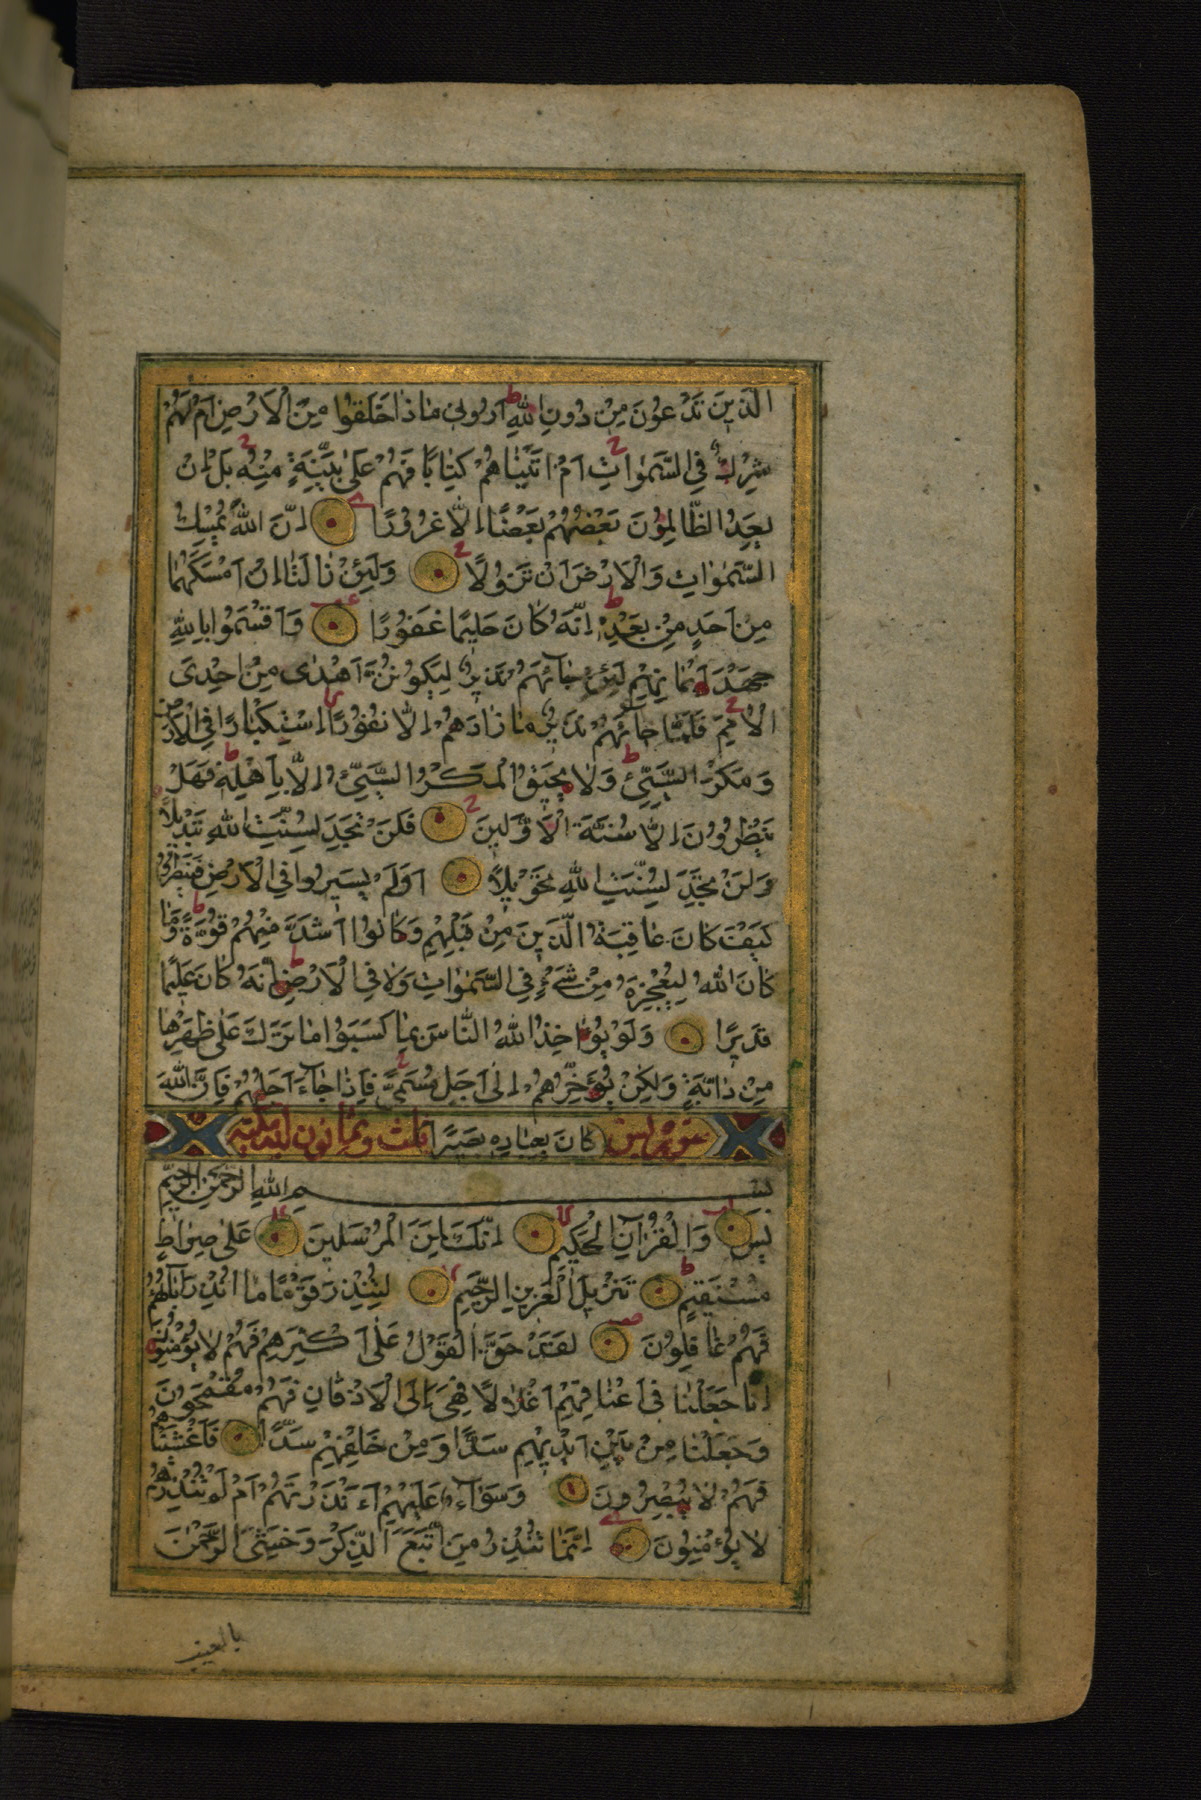 الَّذِينَ تَدْعُونَ مِنْ دُونِ اللّٰهِ اَرُونِي مَاذَا خَلَقُوا مِنَ الْاَرْضِ اَمْ لَهُمْ
شِرْكٌ فِي السَّمٰوَاتِ اَمْ اٰتَيْنَاهُمْ كِتَابًا فَهُمْ عَلٰى بَيِّنَةٍ مِنْهُ بَلْ اِنْ
يَعِدُ الظَّالِمُونَ بَعْضُهُمْ بَعْضًا اِلَّا غُرُورًا اِنَّ اللّٰهَ يُمْسِكُ
السَّمٰوَاتِ وَالْاَرْضَ اَنْ تَزُولَا وَلَئِنْ زَالَتَا اِنْ اَمْسَكَهُمَا
مِنْ اَحَدٍ مِنْ بَعْدِهِ اِنَّهُ كَانَ حَلِيمًا غَفُورًا وَاَقْسَمُوا بِاللّٰهِ
جَهْدَ اَيْمَانِهِمْ لَئِنْ جَاۤءَهُمْ نَذِيرٌ لَيَكُونُنَّ اَهْدٰى مِنْ اِحْدَى
الْاُمَمِ فَلَمَّا جَاۤءَهُمْ نَذِيرٌ مَا زَادَهُمْ اِلَّا نُفُورًا اسْتِكْبَارًا فِي الْاَرْضِ
وَمَكْرَ السَّيِّئِ وَلَا يَحِيقُ الْمَكْرُ السَّيِّئُ اِلَّا بِاَهْلِهِ فَهَلْ
يَنْظُرُونَ اِلَّا سُنَّةَ الْاَوَّلِينَ فَلَنْ تَجِدَ لِسُنَّتِ اللّٰهِ تَبْدِيلًا
وَلَنْ تَجِدَ لِسُنَّتِ اللّٰهِ تَحْوِيلًا اَوَلَمْ يَسِيرُوا فِي الْاَرْضِ فَيَنْظُرُوا
كَيْفَ كَانَ عَاقِبَةُ الَّذِينَ مِنْ قَبْلِهِمْ وَكَانُوا اَشَدَّ مِنْهُمْ قُوَّةً وَمَا
كَانَ اللّٰهُ لِيُعْجِزَهُ مِنْ شَيْءٍ فِي السَّمٰوَاتِ وَلَا فِي الْاَرْضِ اِنَّهُ كَانَ عَلِيمًا
قَدِيرًا وَلَوْ يُؤَاخِذُ اللّٰهُ النَّاسَ بِمَا كَسَبُوا مَا تَرَكَ عَلٰى ظَهْرِهَا
مِنْ دَابَّةٍ وَلٰكِنْ يُؤَخِّرُهُمْ اِلٰى اَجَلٍ مُسَمًّى فَاِذَا جَاۤءَ اَجَلُهُمْ فَاِنَّ اللّٰهَ
سورة يس كَانَ بِعِبَادِهِ بَصِيرًا ثلث وثمانون اية مكية
بِسْمِ اللّٰهِ الرَّحْمٰنِ الرَّحِيمِ
يٰسۤ وَالْقُرْاٰنِ الْحَكِيمِ اِنَّكَ لَمِنَ الْمُرْسَلِينَ عَلٰى صِرَاطٍ
مُسْتَقِيمٍ تَنْزِيلَ الْعَزِيزِ الرَّحِيمِ لِتُنْذِرَ قَوْمًا مَا اُنْذِرَ اٰبَاؤُهُمْ
فَهُمْ غَافِلُونَ لَقَدْ حَقَّ الْقَوْلُ عَلٰى اَكْثَرِهِمْ فَهُمْ لَا يُؤْمِنُونَ
اِنَّا جَعَلْنَا فِي اَعْنَاقِهِمْ اَغْلَالًا فَهِيَ اِلَى الْاَذْقَانِ فَهُمْ مُقْمَحُونَ
وَجَعَلْنَا مِنْ بَيْنِ اَيْدِيهِمْ سَدًّا وَمِنْ خَلْفِهِمْ سَدًّا فَاَغْشَيْنَاهُمْ
فَهُمْ لَا يُبْصِرُونَ وَسَوَاۤءٌ عَلَيْهِمْ ءَاَنْذَرْتَهُمْ اَمْ لَمْ تُنْذِرْهُمْ
لَا يُؤْمِنُونَ اِنَّمَا تُنْذِرُ مَنِ اتَّبَعَ الذِّكْرَ وَخَشِيَ الرَّحْمٰنَ
بالغيب